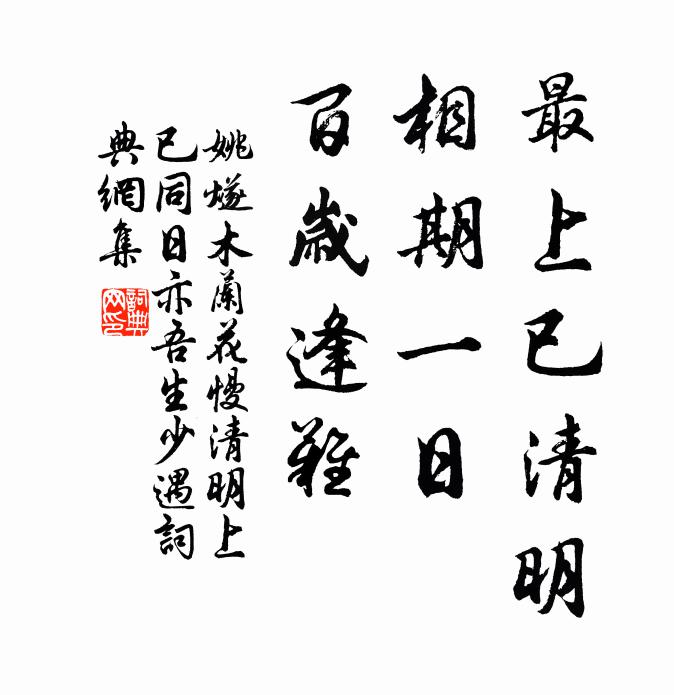 最上巳清明
相期一日
百歲逢難
姚燧木蘭花慢清明上
巳同日亦吾生少遇詞
典網集
詞典
网印